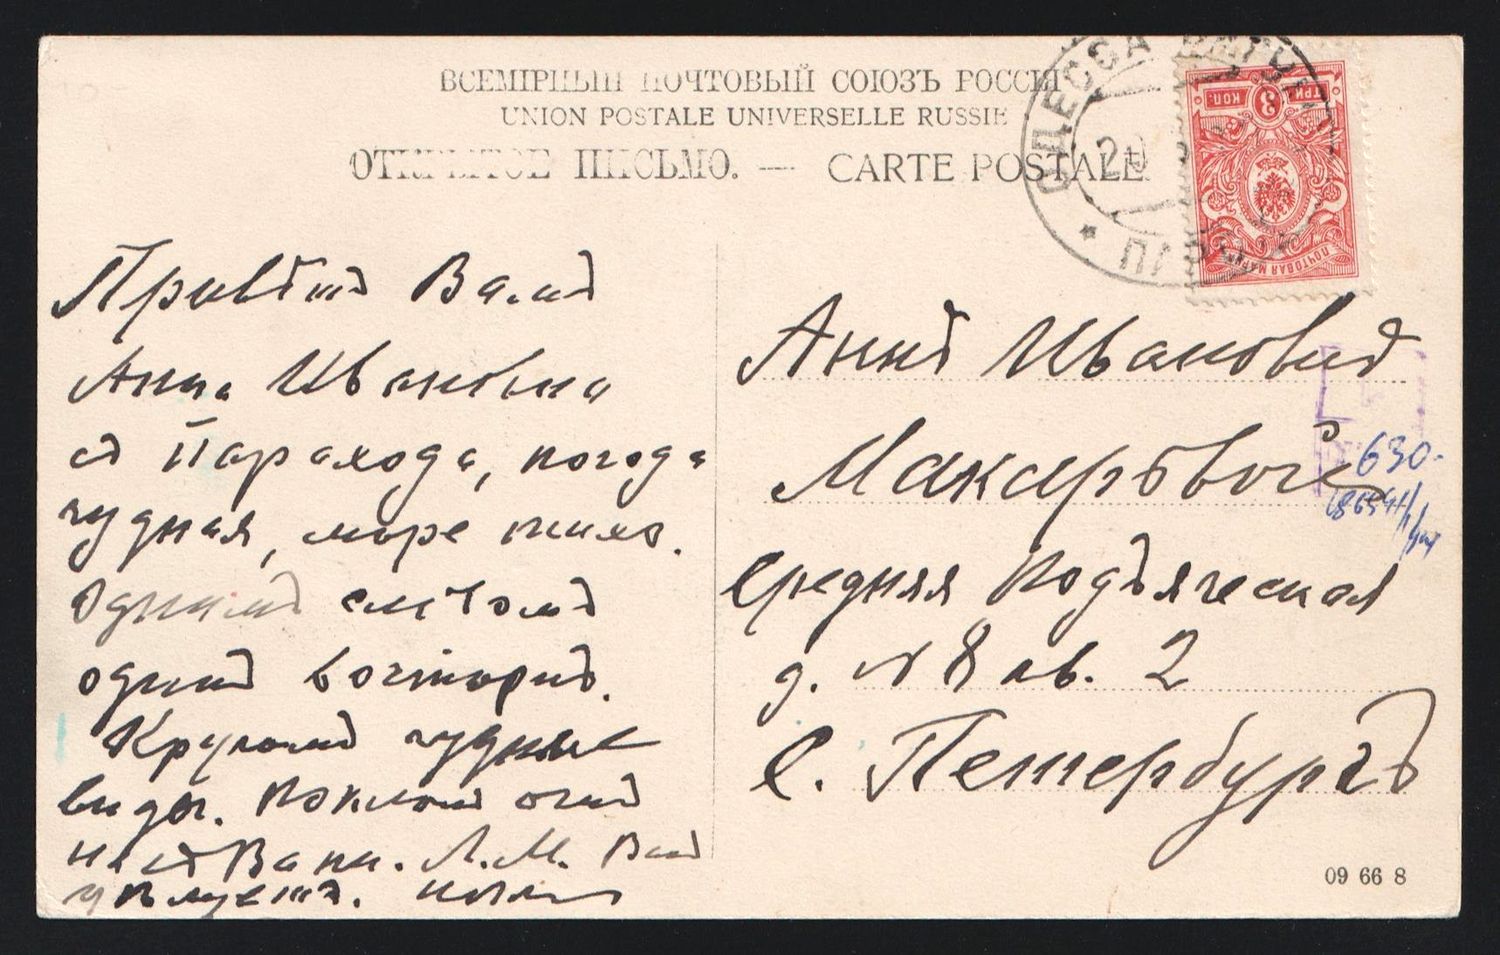 ВСЕМІРНЫЙ ПОЧТОВЫЙ СОЮЗЪ РОССІЯ
UNION POSTALE UNIVERSELLE RUSSIE
ОТКРЫТОЕ ПИСЬМО. — CARTE POSTALE
ОДЕССА БАТУМЪ
ПАРОХ
20
ТРИ 3 КОП.
ПОЧТОВАЯ МАРКА
Привѣтъ Вамъ
Анна Ивановна
съ Парахода, погода
чудная, море тихо.
Однимъ словомъ
одинъ восторгъ.
Кругомъ чудные
виды. Поклонъ отъ
насъ Вани. Л.М. Вамъ
Аннѣ Ивановнѣ
Макаровой
Средняя Подъяческая
д. № 8 кв. 2
С. Петербургъ
630-
09 66 8